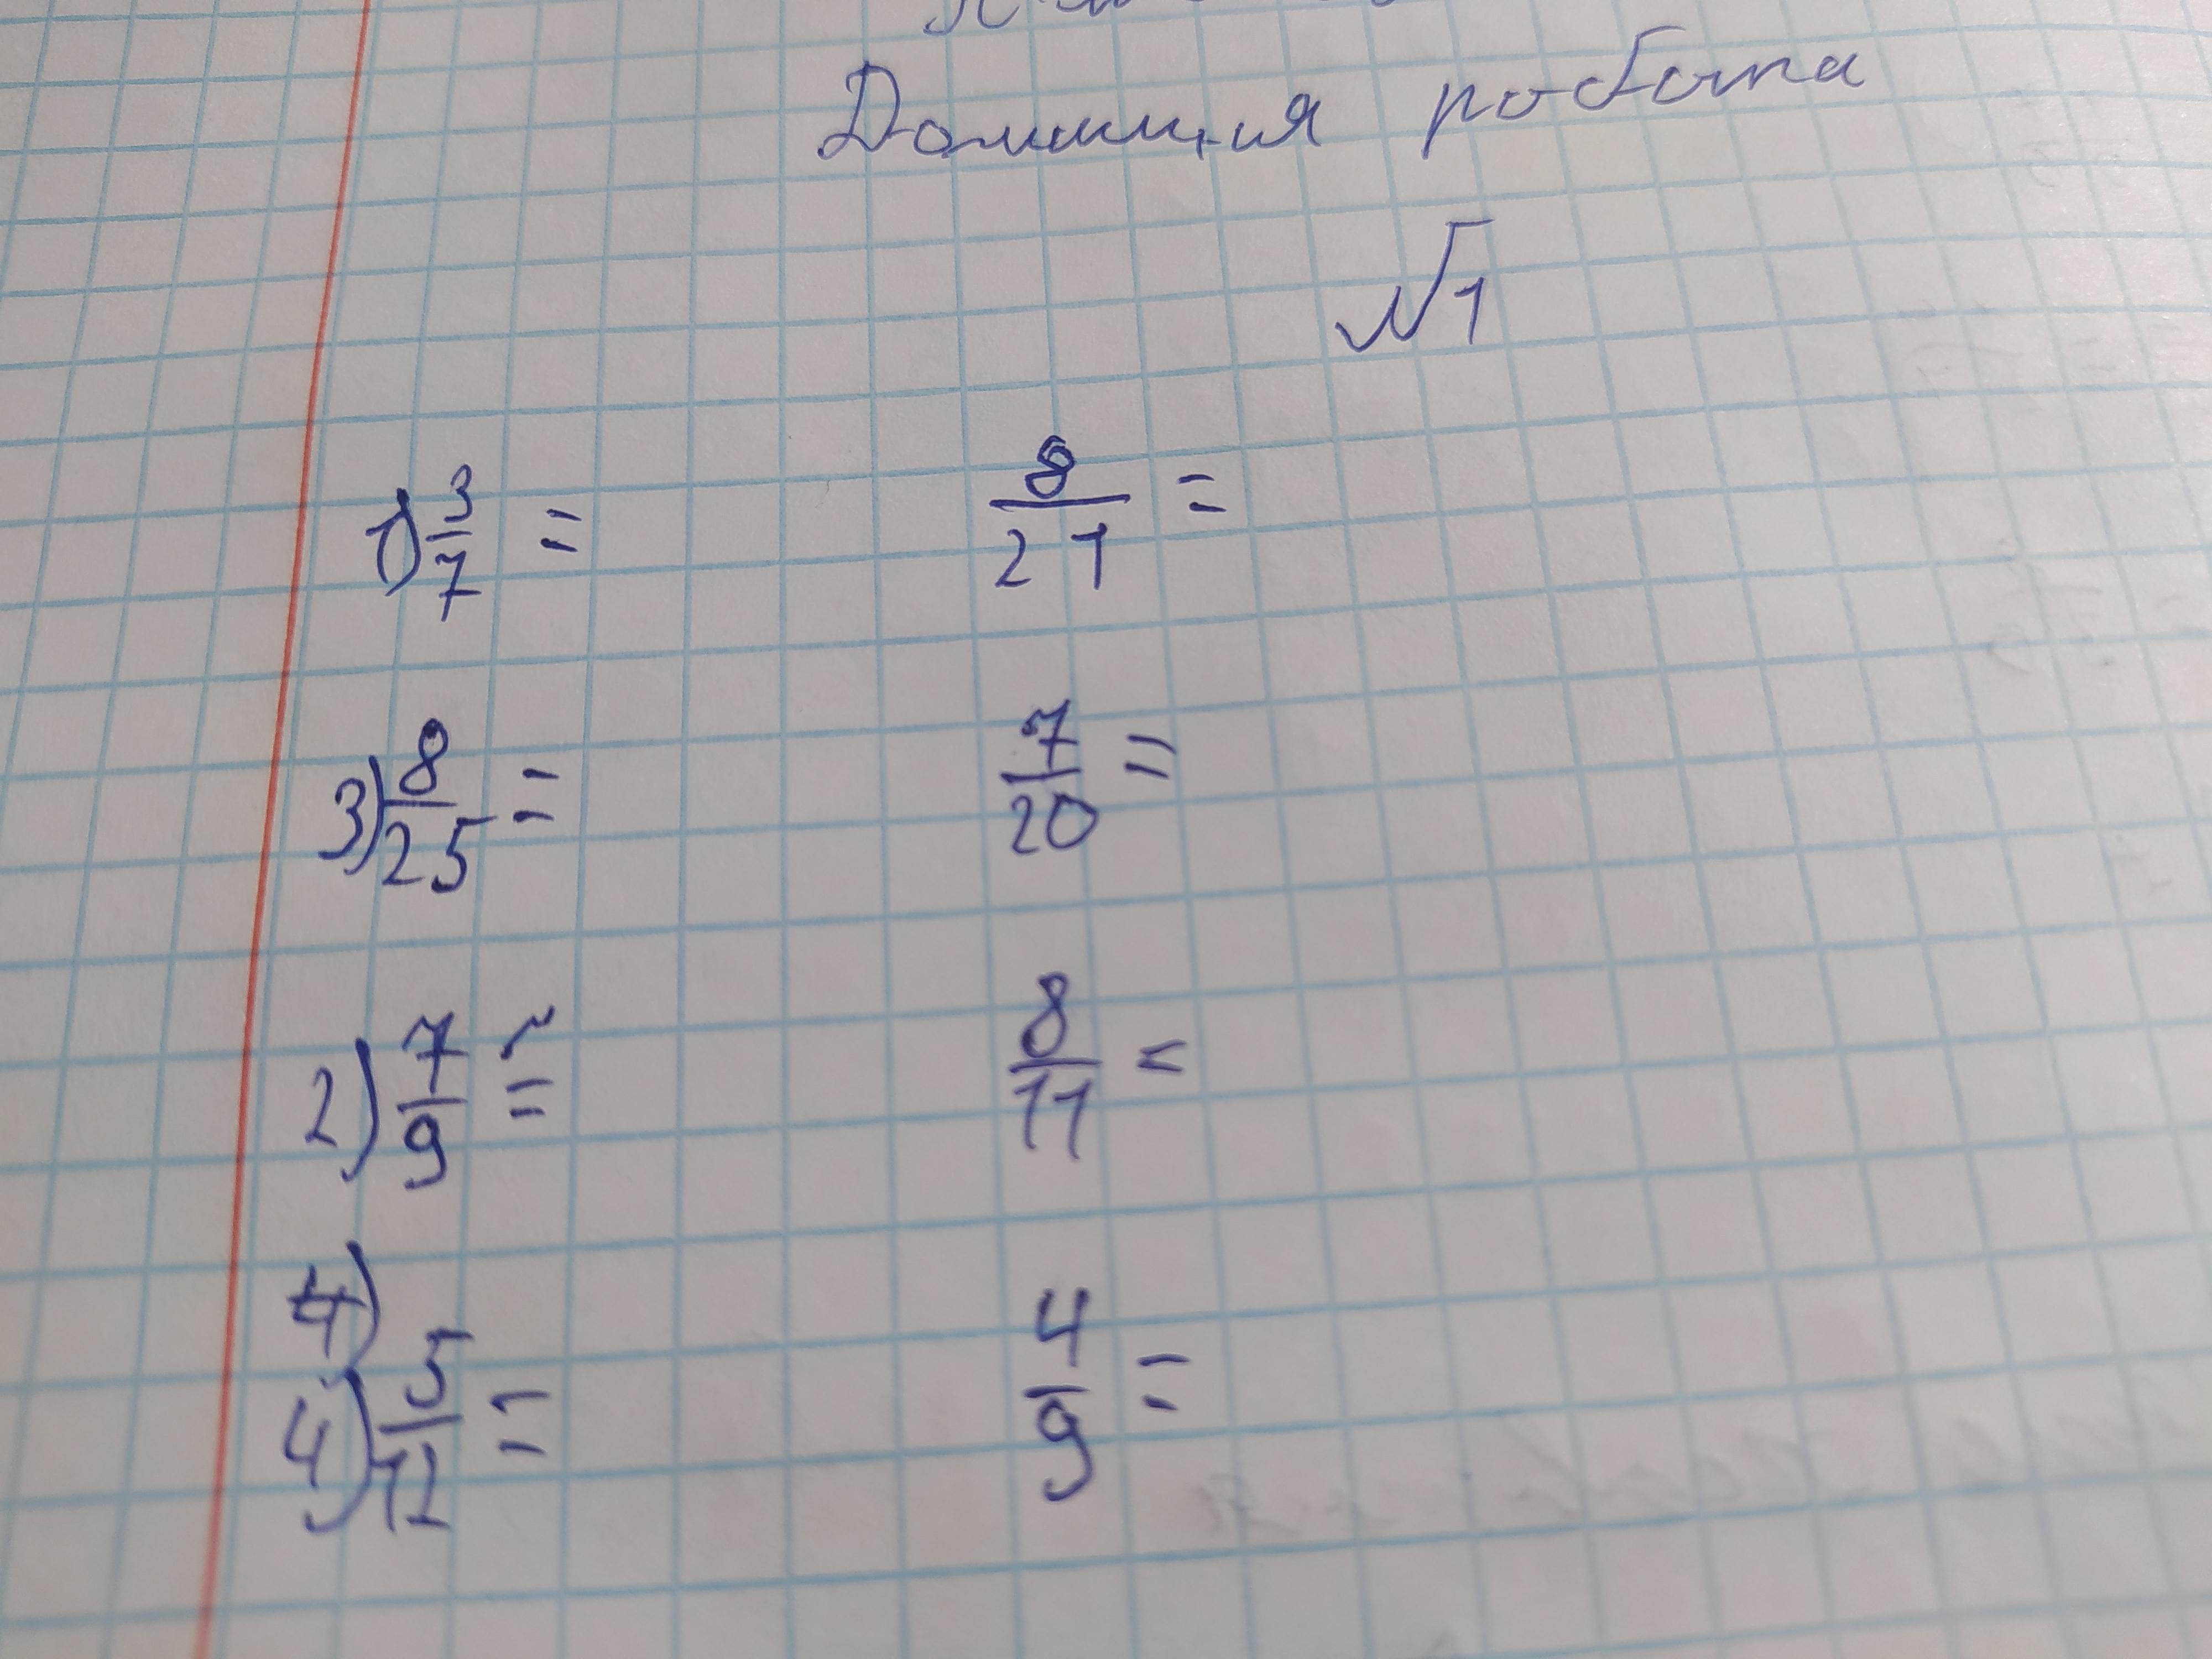 Домашняя робота
№1
1) 3/7 = 8/21 =
3) 8/25 = 7/20 =
2) 7/9 = 8/11 =
4)
4) 5/12 = 4/9 =